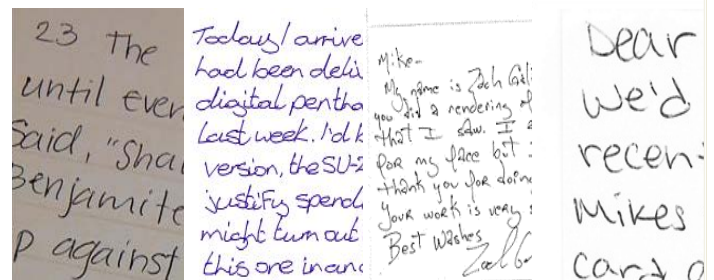 23 The
until ever
Said, "Sha
Benjamite
p against
Today I arrive
had been deli
digital pentha
Last week. I'd k
version, the SU-2
justify spend
might turn out
this one in anc
Mike-
My name is Zach Gali
you did a rendering of
that I saw. I a
for my face but
thank you for doin
Your work is very
Best Wishes
Dear
We'd
recen
Mikes
card a